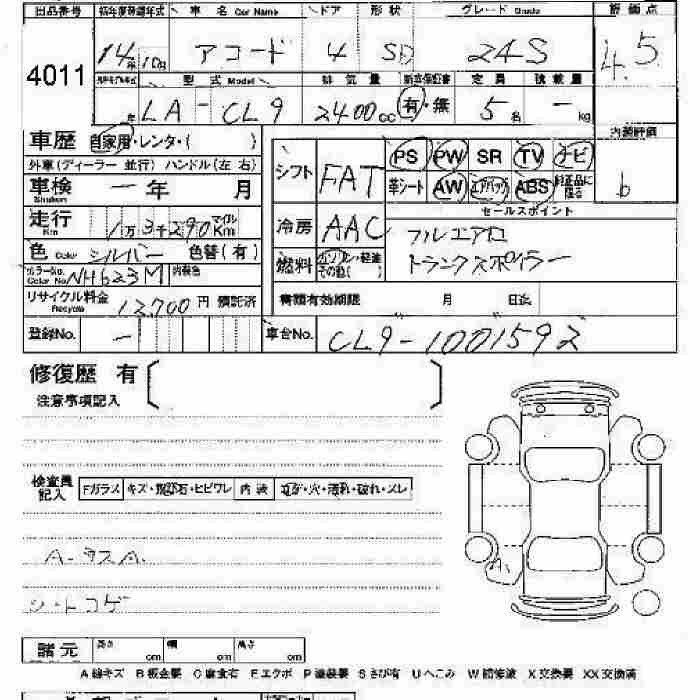 出品番号 初年度登録年式 車名 Car Name ドア 形状 グレード Grade 評価点
4011 14年 10月 アコード 4 SD 24S 4.5
型式 Model 排気量 新車保証書 定員 積載量
LA-CL9 2400cc 有・無 5名 -kg
車歴 自家用・レンタ・( )
内装評価
外車(ディーラー 並行) ハンドル(左 右)
シフト FAT PS PW SR TV ナビ
革シート AW エアバッグ ABS 純正品に限る
b
車検 Shaken 一年 月
走行 Km 1万3千290 マイル Km
冷房 AAC
セールスポイント
フルエアロ
トランクスポイラー
色 Color シルバー 色替(有)
燃料 ガソリン・軽油 その他( )
カラーNo. Color No. NH623M 内装色
リサイクル料金 Recycle 12,700円 預託済
書類有効期限 月 日迄
登録No. -
車台No. CL9-1001592
修復歴 有
注意事項記入
検査員記入 Fガラス キズ・飛び石・ヒビワレ 内装 コゲ・穴・汚れ・破れ・スレ
A-ラスA.
シートコゲ
諸元 長さ cm 幅 cm 高さ cm
A 線キズ B 板金要 C 腐食有 E エクボ P 塗装要 S さび有 U ヘこみ W 補修波 X 交換要 XX 交換済